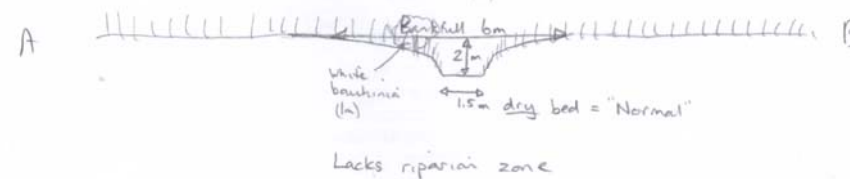 A
Bankfull 6m
2m
white
bauhinia
(1m)
1.5m dry bed = "Normal"
Lacks riparian zone